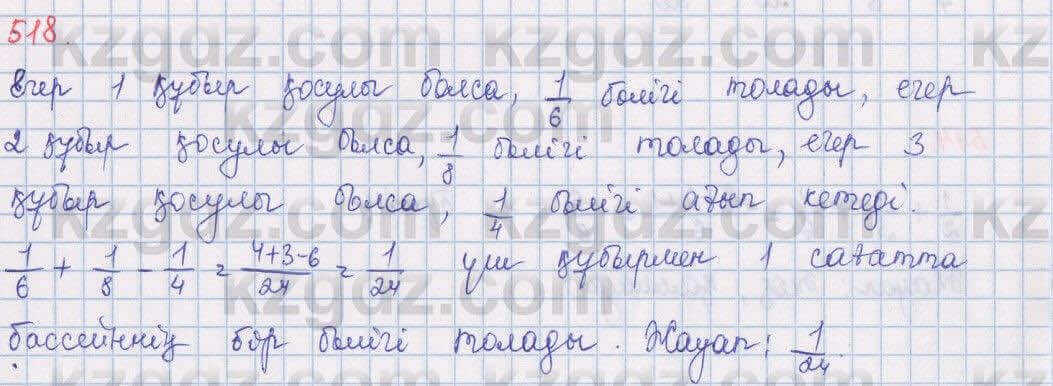 518.
Егер 1 құбыр қосулы болса, 1/6 бөлігі толады, егер
2 құбыр қосулы болса, 1/8 бөлігі толады, егер 3
құбыр қосулы болса, 1/4 бөлігі ағып кетеді.
1/6 + 1/8 - 1/4 = 4+3-6/24 = 1/24 үш құбырмен 1 сағатта
бассейннің бір бөлігі толады. Жауап: 1/24.
kzgdz.com